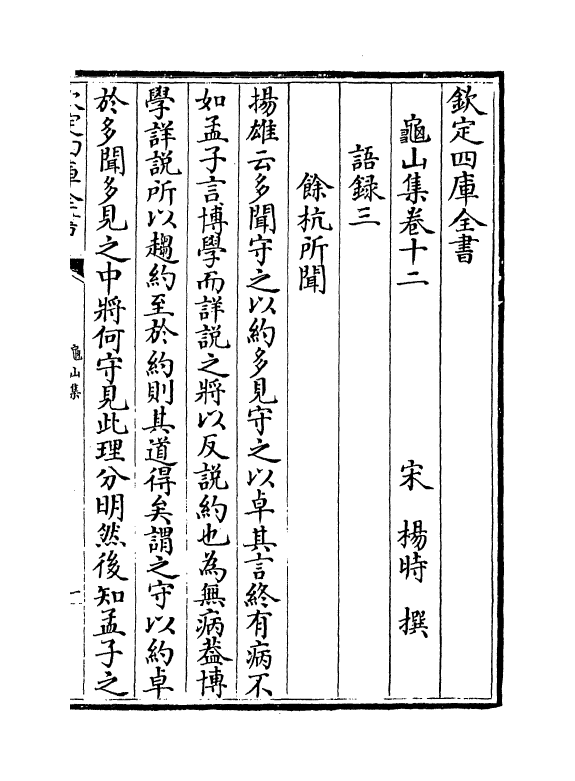 欽定四庫全書
龜山集卷十二　宋　楊時　撰
語録三
餘杭所聞
揚雄云多聞守之以約多見守之以卓其言終有病不
如孟子言博學而詳説之將以反説約也為無病葢博
學詳説所以趨約至於約則其道得矣謂之守以約卓
於多聞多見之中將何守見此理分明然後知孟子之
欽定四庫全書
龜山集
一